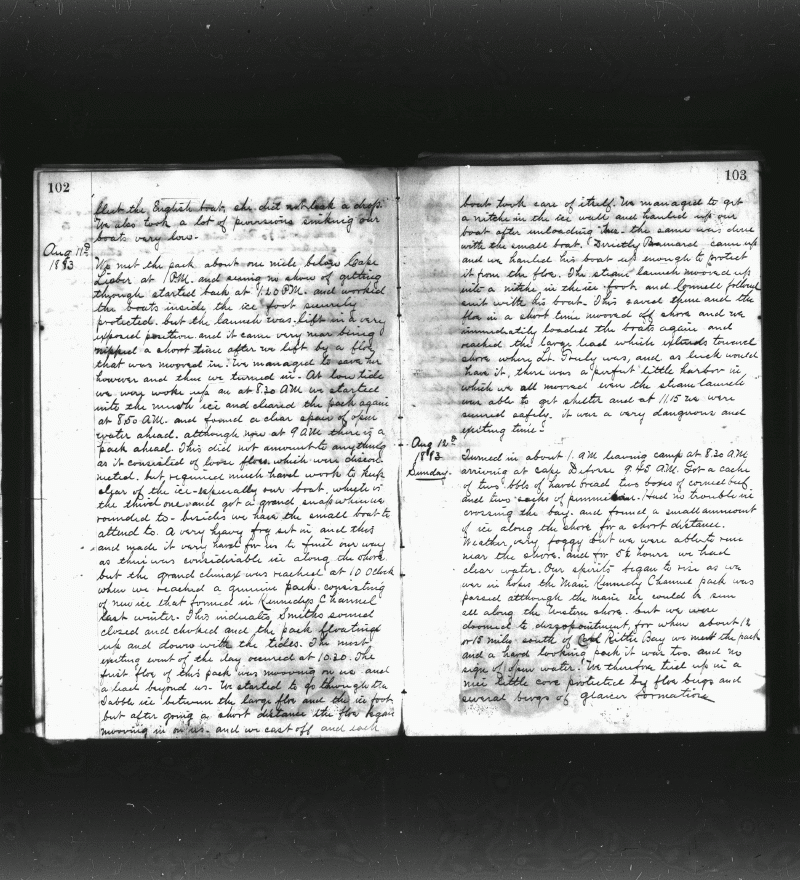 102
but the English boat, she did not leak a drop.
We also took a lot of provisions sinking our
boats very low.
Aug 11th
1883
We met the pack about one mile below Cape
Lieber at 1 P.M. and seeing no show of getting
through started back at 1.20 P.M. and worked
the boats inside the ice foot securely
protected. but the launch was left in a very
exposed position and it came very near being
nipped a short time after we left by a floe
that was moored in. We managed to save her
however and then we turned in. At low tide
we were woke up an at 8.20 A.M we started
into the much ice and cleared the pack again
at 8.50 A.M. and found a clear space of open
water ahead. although now at 9 A.M there is a
pack ahead. This did not amount to anything
as it consisted of loose floes, which were discon
nected. but required much hard work to keep
clear of the ice especially our boat, which is
the third one and got a grand snap when we
rounded to - besides we have the small boat to
attend to. A very heavy fog set in and this
and made it very hard for us to find our way
as there was considerable ice along the shore.
but the grand climax was reached at 10 Oclock
when we reached a genuine pack. consisting
of new ice that formed in Kennedys Channel
last winter. This indicates Smiths sound
closed and choked and the pack floating
up and down with the tides. The most
exciting event of the day occured at 10.20. The
first floe of this pack was mooving on us and
a lead beyond us. We started to go through the
rubble ice between the large floe and the ice foot,
but after going a short distance the floe began
mooving in on us. and we cast off and each
103
boat took care of itself. We managed to get
a nitche in the ice wall and hauled up our
boat after unloading her. the same was done
with the small boat. Directly Brainard came up
and we hauled his boat up enough to protect
it from the floe. The steam launch moored up
into a nitche in the ice-foot. and Connell followed
suit with his boat. This saved them and the
floe in a short time mooved off shore and we
immediatly loaded the boats again and
reached the large lead which extends toward
shore where Lt. Greely was, and as luck would
have it, there was a perfect little harbor in
which we all moored even the steam launch
was able to get shelter and at 11.15 we were
secured safely. it was a very dangerous and
exciting time.
Aug 12th
1883
Sunday.
Turned in about 1. A.M leaving camp at 8.30 A.M.
arriving at cape Defosse 9.45 A.M. Got a cache
of two bbls of hard bread two boxes of corned beef,
and two sacks of pemmican. Had no trouble in
crossing the bay. and found a small ammount
of ice along the shore for a short distance.
Weather very foggy but we were able to run
near the shore. and for 5½ hours we had
clear water. Our spirits began to rise as we
were in hopes the Main Kennedy Channel pack was
passed although the main ice could be seen
all along the Western shore. but we were
doomed to disappointment, for when about 12
or 15 miles south of Carl Ritter Bay we met the pack
and a hard looking pack it was too. and no
sign of open water! We therefore tied up in a
nice little cove protected by floe bergs and
several bergs of glacier formation